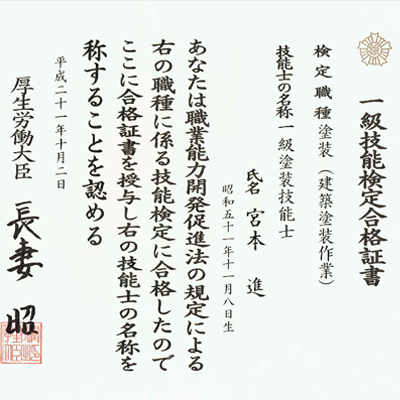 一級技能検定合格証書
検定職種 塗装（建築塗装作業）
技能士の名称 一級塗装技能士
氏名 宮本 進
昭和五十一年十一月八日生
あなたは職業能力開発促進法の規定による
右の職種に係る技能検定に合格したので
ここに合格証書を授与し右の技能士の名称を
称することを認める
平成二十一年十月二日
厚生労働大臣 長妻 昭